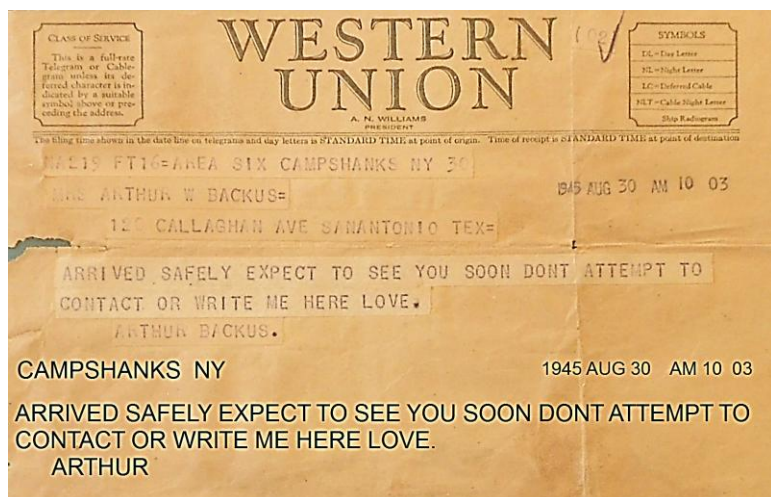 CLASS OF SERVICE
This is a full-rate
Telegram or Cable-
gram unless its de-
ferred character is in-
dicated by a suitable
symbol above or pre-
ceding the address.
WESTERN
UNION
A. N. WILLIAMS
PRESIDENT
SYMBOLS
DL=Day Letter
NL=Night Letter
LC=Deferred Cable
NLT=Cable Night Letter
Ship Radiogram
The filing time shown in the date line on telegrams and day letters is STANDARD TIME at point of origin. Time of receipt is STANDARD TIME at point of destination
FT16=AREA SIX CAMPSHANKS NY 30
1945 AUG 30 AM 10 03
MRS ARTHUR W BACKUS=
CALLAGHAN AVE SANANTONIO TEX=
ARRIVED SAFELY EXPECT TO SEE YOU SOON DONT ATTEMPT TO
CONTACT OR WRITE ME HERE LOVE.
ARTHUR BACKUS.
CAMPSHANKS NY 1945 AUG 30 AM 10 03
ARRIVED SAFELY EXPECT TO SEE YOU SOON DONT ATTEMPT TO
CONTACT OR WRITE ME HERE LOVE.
ARTHUR